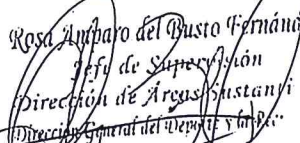 Rosa Amparo del Busto Fernánd
Jefe de Supervisión
Dirección de Áreas Sustanti
Dirección General del Deporte y la